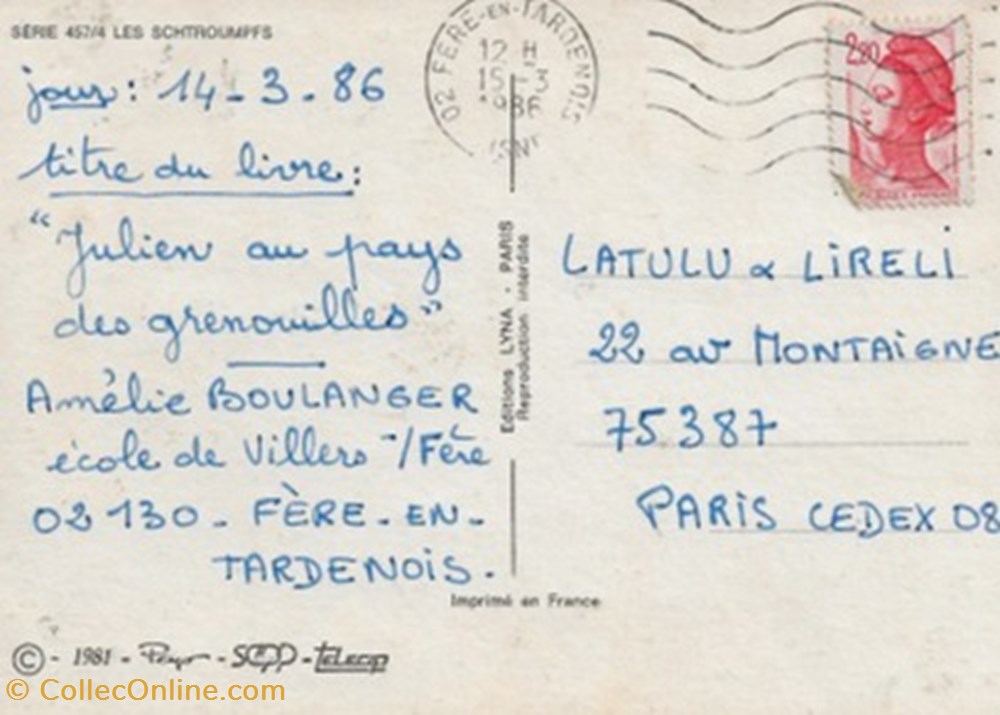 SÉRIE 457/4 LES SCHTROUMPFS
02 FÈRE-EN-TARDENOIS
12 H
15 - 3
1986
AISNE
2,20
jour : 14 - 3 - 86
titre du livre :
"Julien au pays
des grenouilles"
Amélie BOULANGER
école de Villers -/Fère
02 130 - FÈRE - EN -
TARDENOIS .
Editions LYNA - PARIS
Reproduction interdite
LATULU & LIRELI
22 av MONTAIGNE
75387
PARIS CEDEX 08
Imprimé en France
© - 1981 - Peyo - SEPP - telecip
© CollecOnline.com